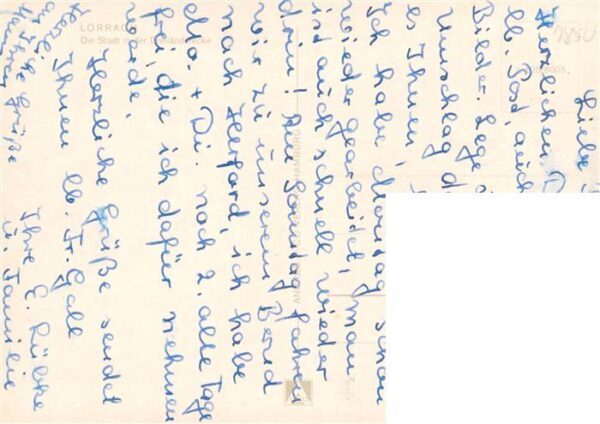 LÖRRACH
Die Stadt in der Dreiländerecke
Liebe
Herzlichen D
lb. Post, auch
Bilder. Lege
Umschlag d
es Ihnen
Ich habe Montag schon
wieder gearbeitet, man
ist auch schnell wieder
drin! Am Sonntag fahren
wir zu unserem Bernd
nach Herford, ich habe
Mo. + Di. noch 2. alte Tage
frei, die ich dafür nehmen
werde.
Herzliche Grüße sendet
Ihnen lb. Fr. Gall
Ihre E. Lübke
u. Familie
Herzl.
Grüße